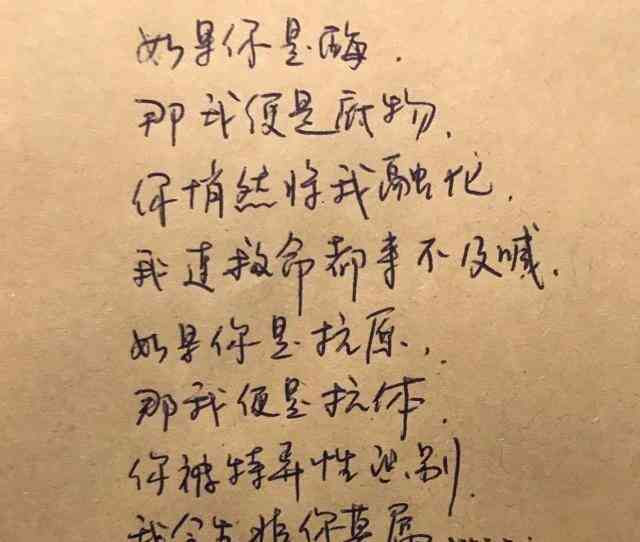 如果你是酶.
那我便是底物.
你悄然将我融化,
我连救命都来不及喊.
如果你是抗原,.
那我便是抗体.
你被特异性识别.
我今生非你莫属